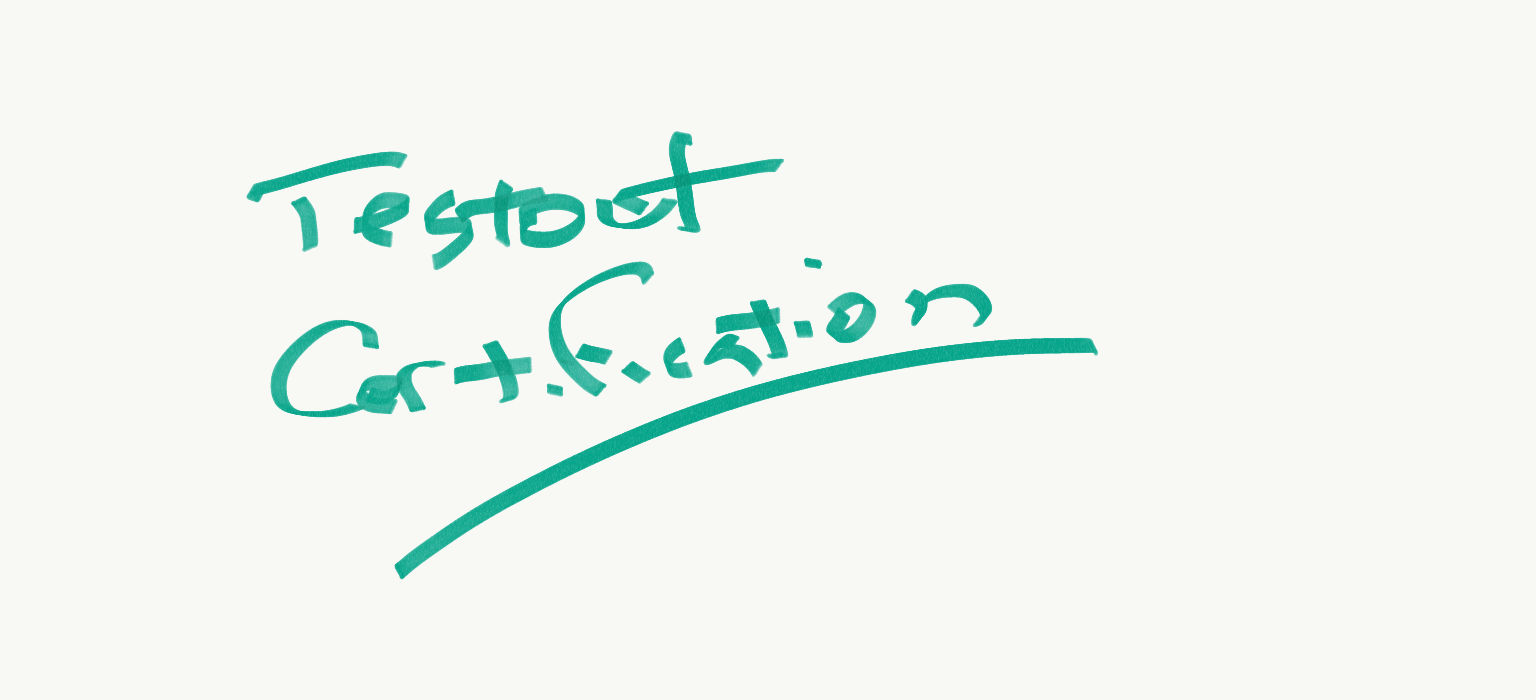 Testout
Certification